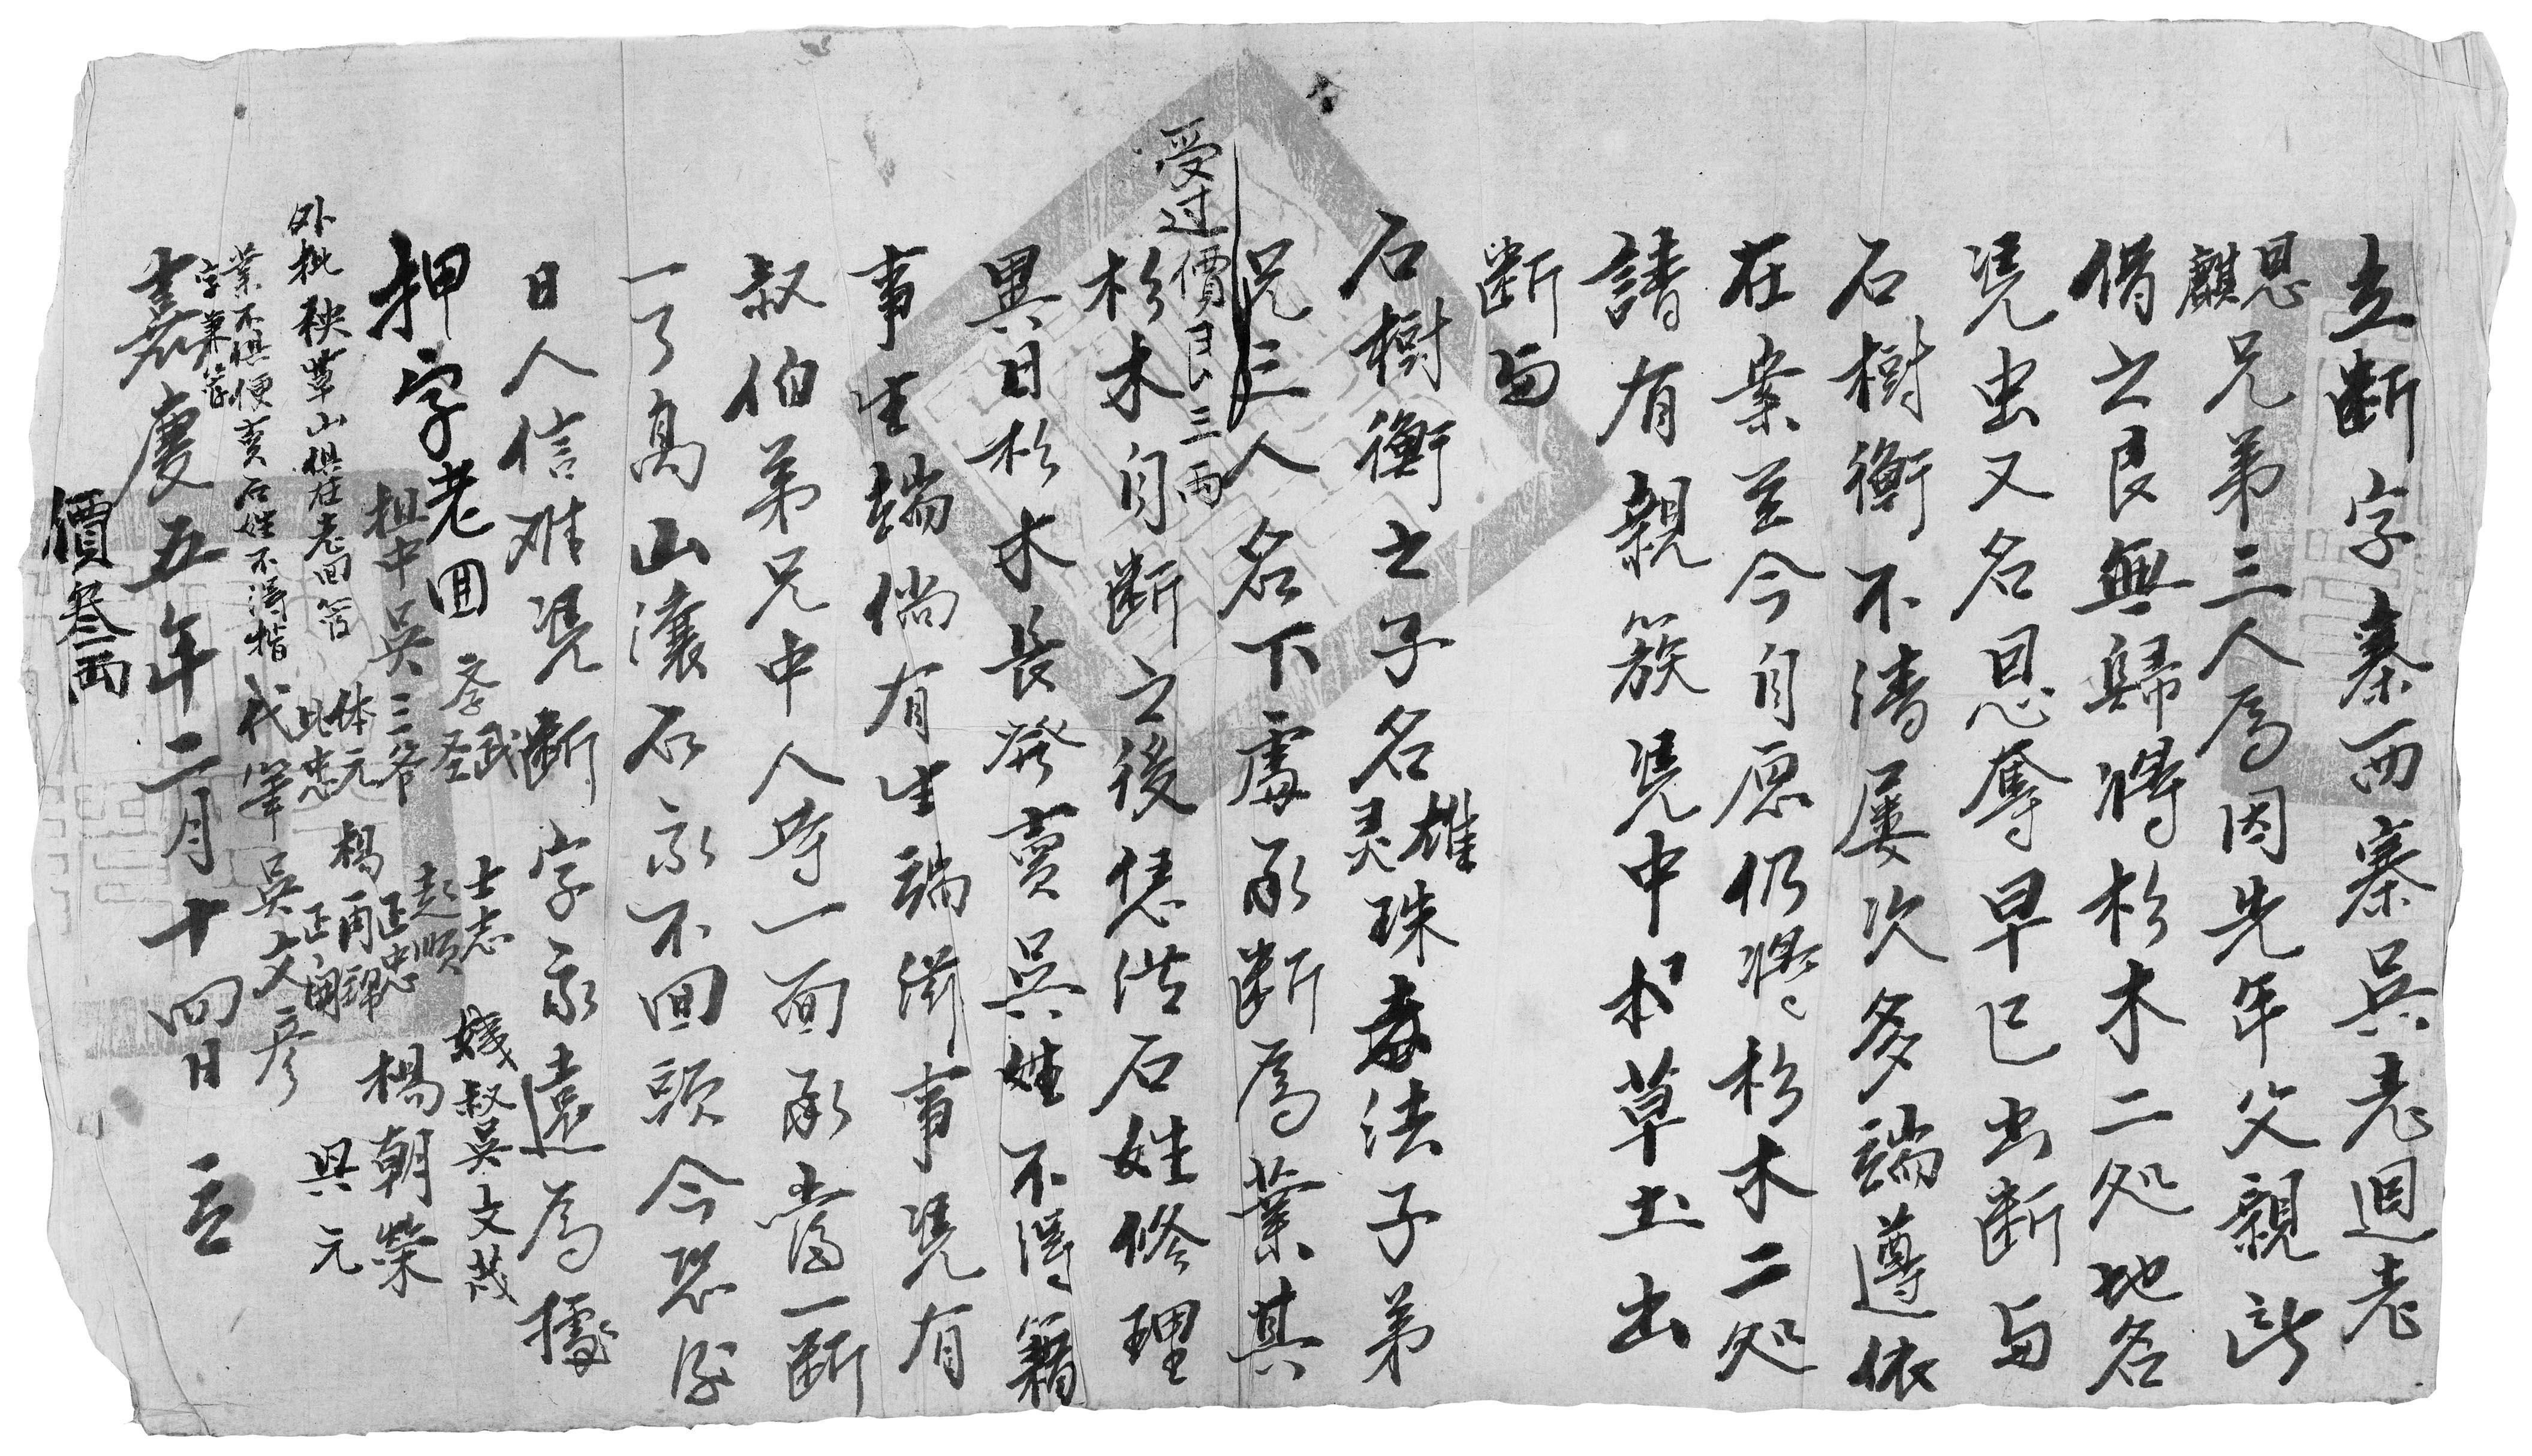 立断字寨西寨吳老迴老
恩麒兄弟三人爲因先年父親所
借之艮無歸將杉木二処地名
凴虫又名恩奪早已出断与
石樹衡不清屢次多端遵依
在案並今自愿仍將杉木二処
請有親簇凴中 草土出
断与
石樹衡之子名雄灵珠 法子弟
兄三人名下處承断爲業其
受过價艮三両
杉木自断之後恁從石姓修理
異日杉木長發賣吳姓不得籍
事生端倘有生端滋事凴有
叔伯弟兄中人等一面承當一断
一了高山瀼石永不回頭今恐後
日人信难凴断字永遠爲據
押字老回
外批秧草山俱在老回管
業不俱便賣石姓不得指
字業管
中吳三爷
楊朝榮
叔吳文茂
士志
彭順
正忠
体元
興元
代筆吳文彥
嘉慶五年二月十四日立
價叁両